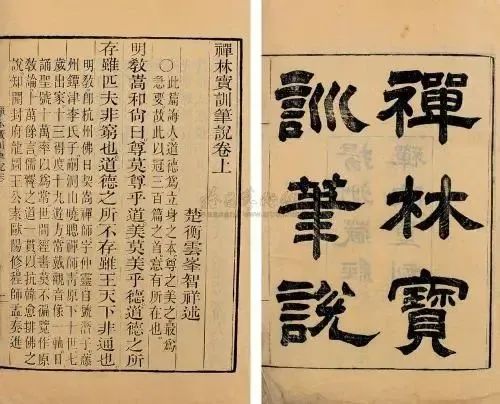 禪林寶
訓筆說
禪林寶訓筆說卷上
楚衡雲峯智祥述
○此篇誨人道德爲立身之本尊之美之最爲
急要故此以冠三百篇之首意有所在也
明教嵩和尚曰尊莫尊乎道美莫美乎德道德之所
存雖匹夫非窮也道德之所不存雖王天下非通也
明教卽杭州佛日契嵩禪師字仲靈自號潛子藤
州鐔津李氏子嗣洞山曉聰禪師青原下十世七
歲出家十三得度十九遊方常戴觀音像一軸日
誦聖號十萬聲於世間經書莫不徧覽作原
教論十萬餘言儒釋之道一貫以抗韓愈排佛之
說知開封府龍圖王公素歐陽修程師孟奏進